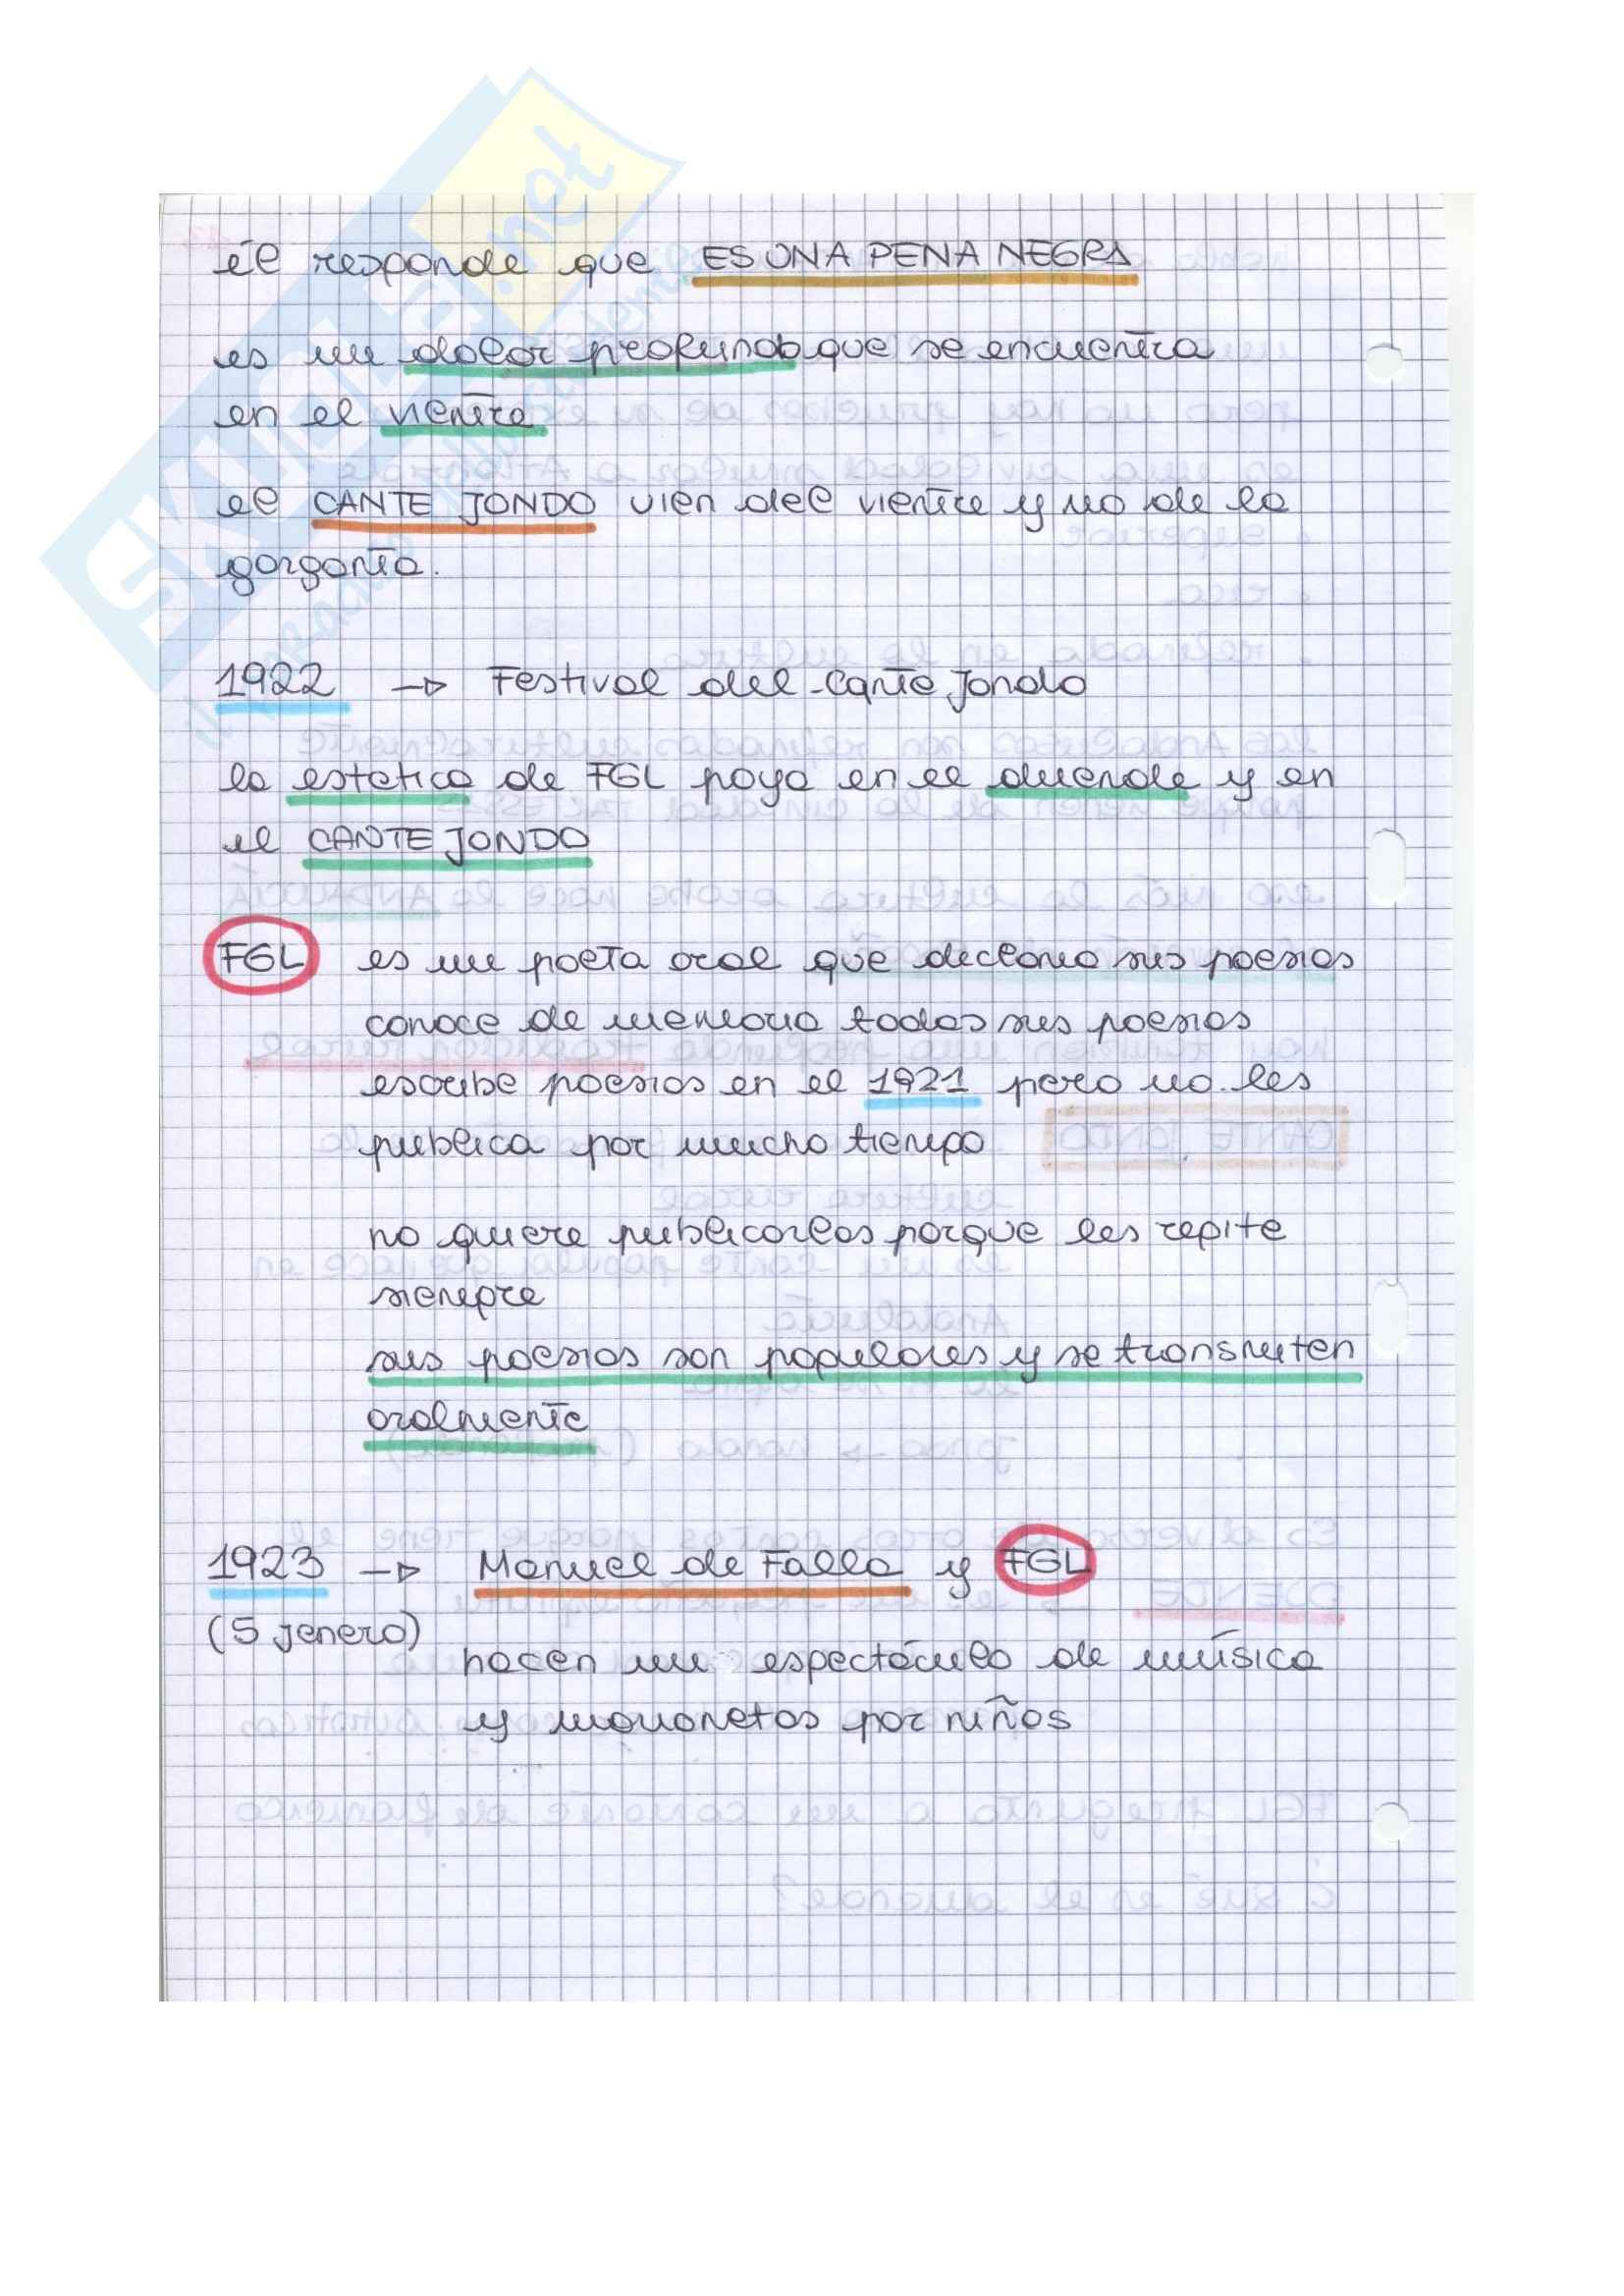 él responde que ES UNA PENA NEGRA
es un dolor profundo que se encuentra
en el vientre
el CANTE JONDO vien del vientre y no de la
garganta.
1922 → Festival del Cante Jondo
la estetica de FGL poya en el duende y en
el CANTE JONDO
FGL es un poeta oral que declama sus poesias
conoce de memoria todas sus poesias
escribe poesias en el 1921 pero no les
publica por mucho tiempo
no quiere publicarlas porque les repite
siempre
sus poesias son populares y se transmiten
oralmente
1923 → Manuel de Falla y FGL
(5 jenero)
hacen un espectáculo de música
y marionetas por niños
SKUOLA.net